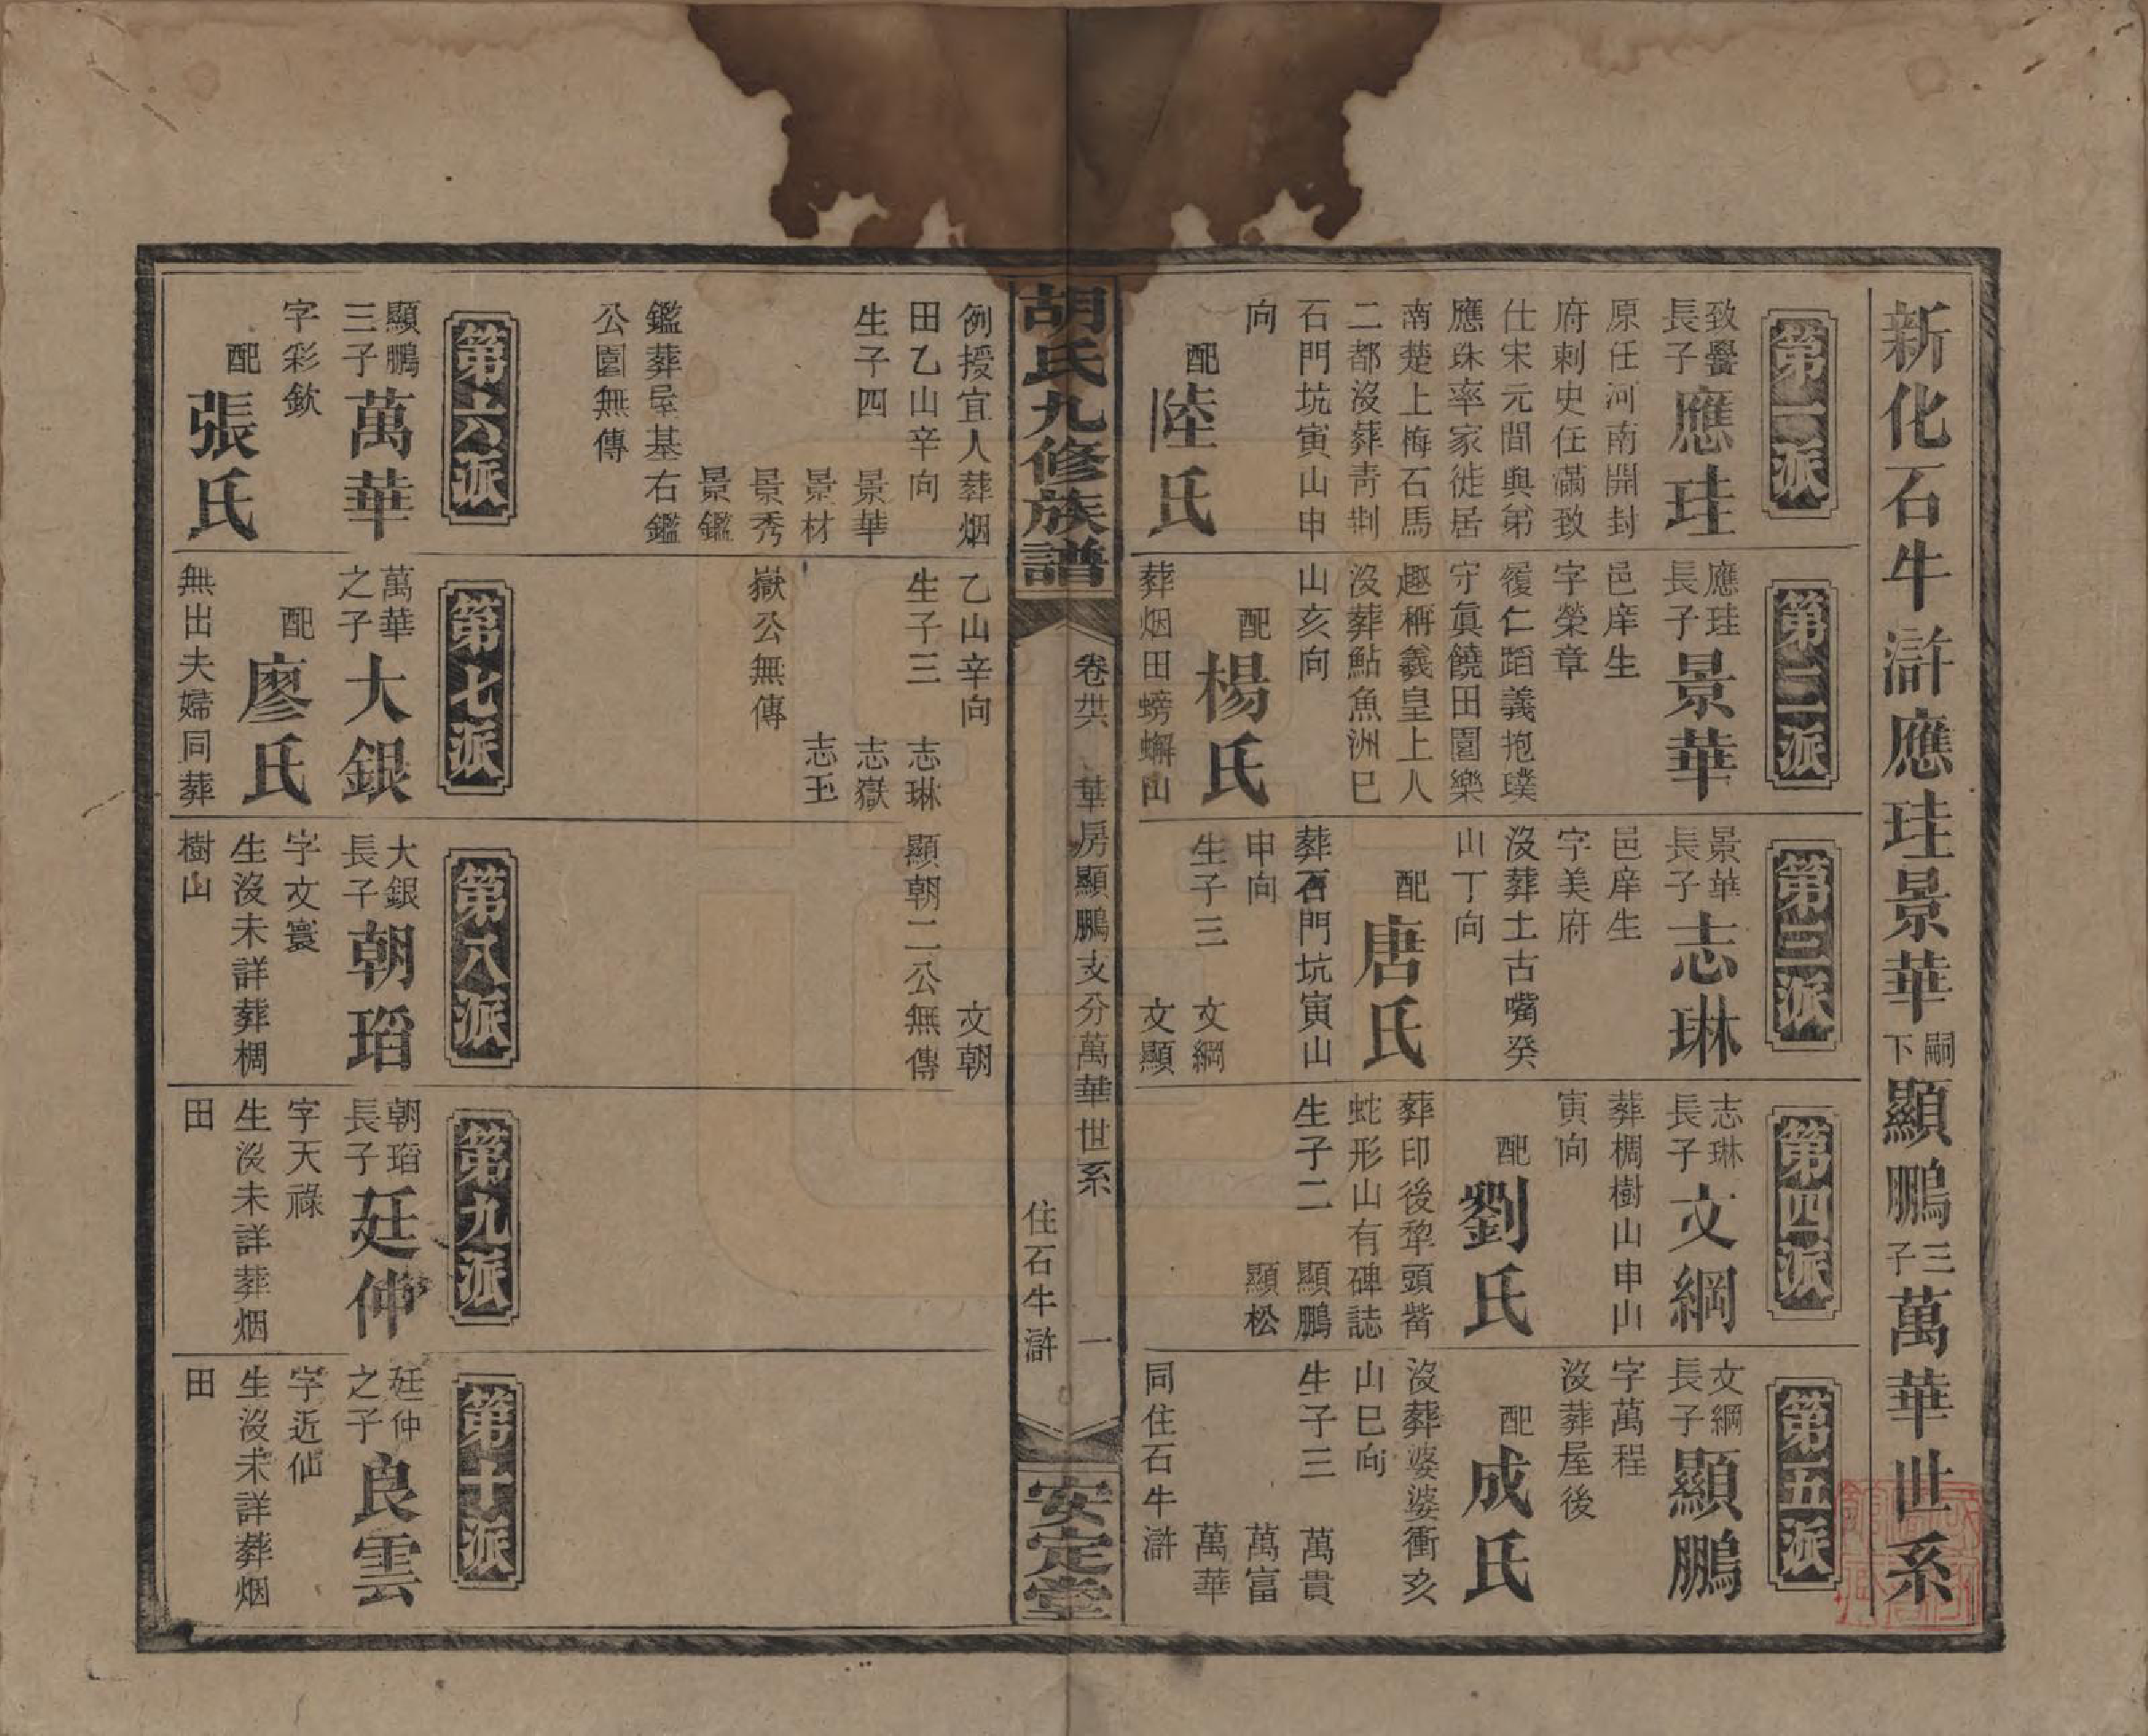 新化石牛滸應珪景華嗣下顯鵬三子萬華世系
第一派
致譽長子應珪
原任河南開封
府刺史任滿致
仕宋元間與弟
應珠率家徙居
南楚上梅石馬
二都沒葬青刺
石門坑寅山申
向
配陸氏
例授宜人葬烟
田乙山辛向
生子四 景華
景材
景秀
景鑑
鑑葬屋基右鑑
公園無傳
第二派
應珪長子景華
邑庠生
字榮章
履仁蹈義抱璞
守眞饒田園樂
趣稱羲皇上人
沒葬鮎魚洲巳
山亥向
配楊氏
葬烟田螃蠏山
乙山辛向
生子三 志琳
志嶽
志玉
嶽公無傳
第三派
景華長子志琳
邑庠生
字美府
沒葬土古嘴癸
山丁向
配唐氏
葬石門坑寅山
申向
生子三 文綱
文顯
文朝
顯朝二公無傳
第四派
志琳長子文綱
葬椆樹山申山
寅向
配劉氏
葬印後犂頭觜
蛇形山有碑誌
生子二 顯鵬
顯松
第五派
文綱長子顯鵬
字萬程
沒葬屋後
配成氏
沒葬婆婆衝亥
山巳向
生子三 萬貴
萬富
萬華
同住石牛滸
胡氏九修族譜
卷廿六 華房顯鵬支分萬華世系 一
住石牛滸
安定堂
第六派
顯鵬三子萬華
字彩欽
配張氏
第七派
萬華之子大銀
配廖氏
無出夫婦同葬
第八派
大銀長子朝瑫
字文寰
生沒未詳葬椆
樹山
第九派
朝瑫長子廷仲
字天祿
生沒未詳葬烟
田
第十派
廷仲之子良雲
字近仙
生沒未詳葬烟
田